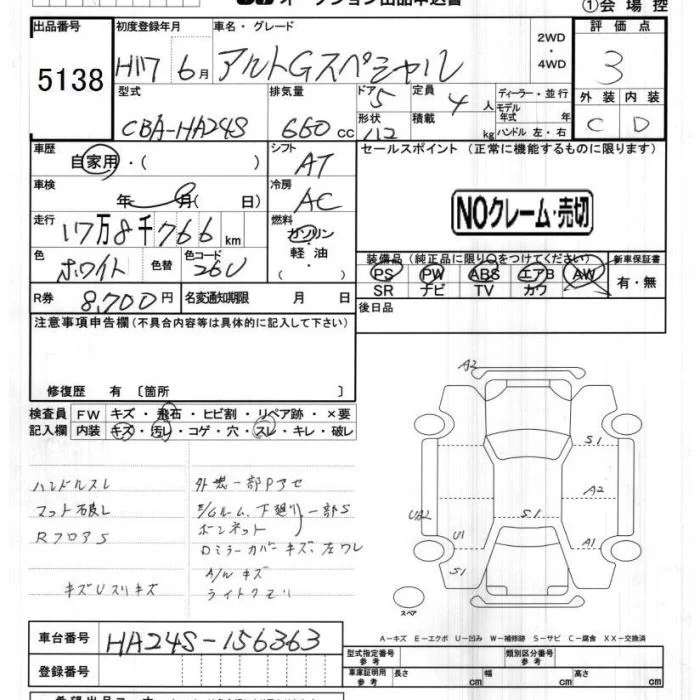 オークション出品申込書
①会場控
出品番号 初度登録年月 車名・グレード 評価点
5138 H17 6月 アルトGスペシャル 2WD・4WD 3
型式 排気量 ドア 5 定員 4人 ディーラー・並行 外装 内装
CBA-HA24S 660cc 形状 112 積載 kg モデル年式 年 ハンドル 左・右 C D
車歴 自家用・( ) シフト AT セールスポイント (正常に機能するものに限ります)
車検 年 月(日) 冷房 AC
NOクレーム・売切
走行 17万8千766km 燃料 ガソリン・軽油・( )
色 ホワイト 色替 色コード 26U
装備品(純正品に限り○をつけてください) 新車保証書
PS PW ABS エアB AW 有・無
SR ナビ TV カワ
R券 8,700円 名変通知期限 月 日 後日品
注意事項申告欄(不具合内容等は具体的に記入して下さい)
修復歴 有〔箇所 〕
検査員 FW キズ・飛石・ヒビ割・リペア跡・×要
記入欄 内装 キズ・汚レ・コゲ・穴・スレ・キレ・破レ
ハンドルスレ
マット破レ
RフロアS
キズUスリキズ
外装一部Pアセ
E/Gルーム、下廻り一部S
ボンネット
Dミラーカバーキズ、左ワレ
A/Wキズ
ライトクモリ
A2
S1
A2
UA2 S1
U1 A1
S1
スペア
A-キズ E-エクボ U-凹み W-補修跡 S-サビ C-腐食 XX-交換済
車台番号 HA24S-156363
型式指定番号 参考 類別区分番号 参考
登録番号 車庫証明用 参考 長さ cm 幅 cm 高さ cm
希望出品コーナー